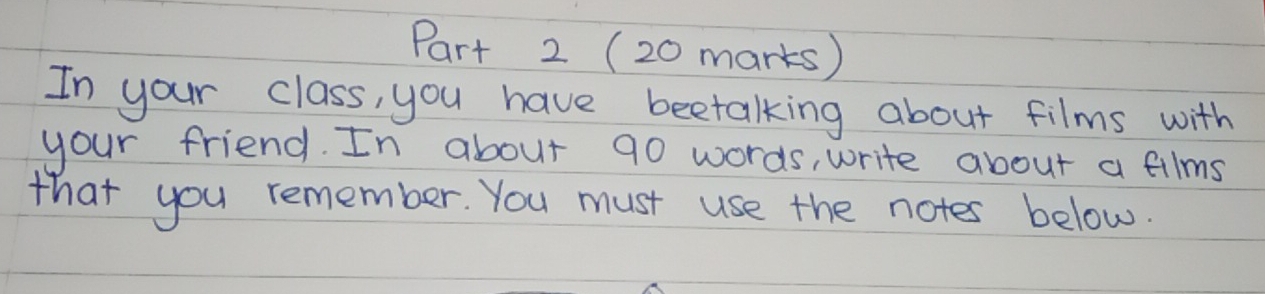 Part 2 (20 marks)
In your class, you have beetalking about films with
your friend. In about 90 words, write about a films
that you remember. You must use the notes below.